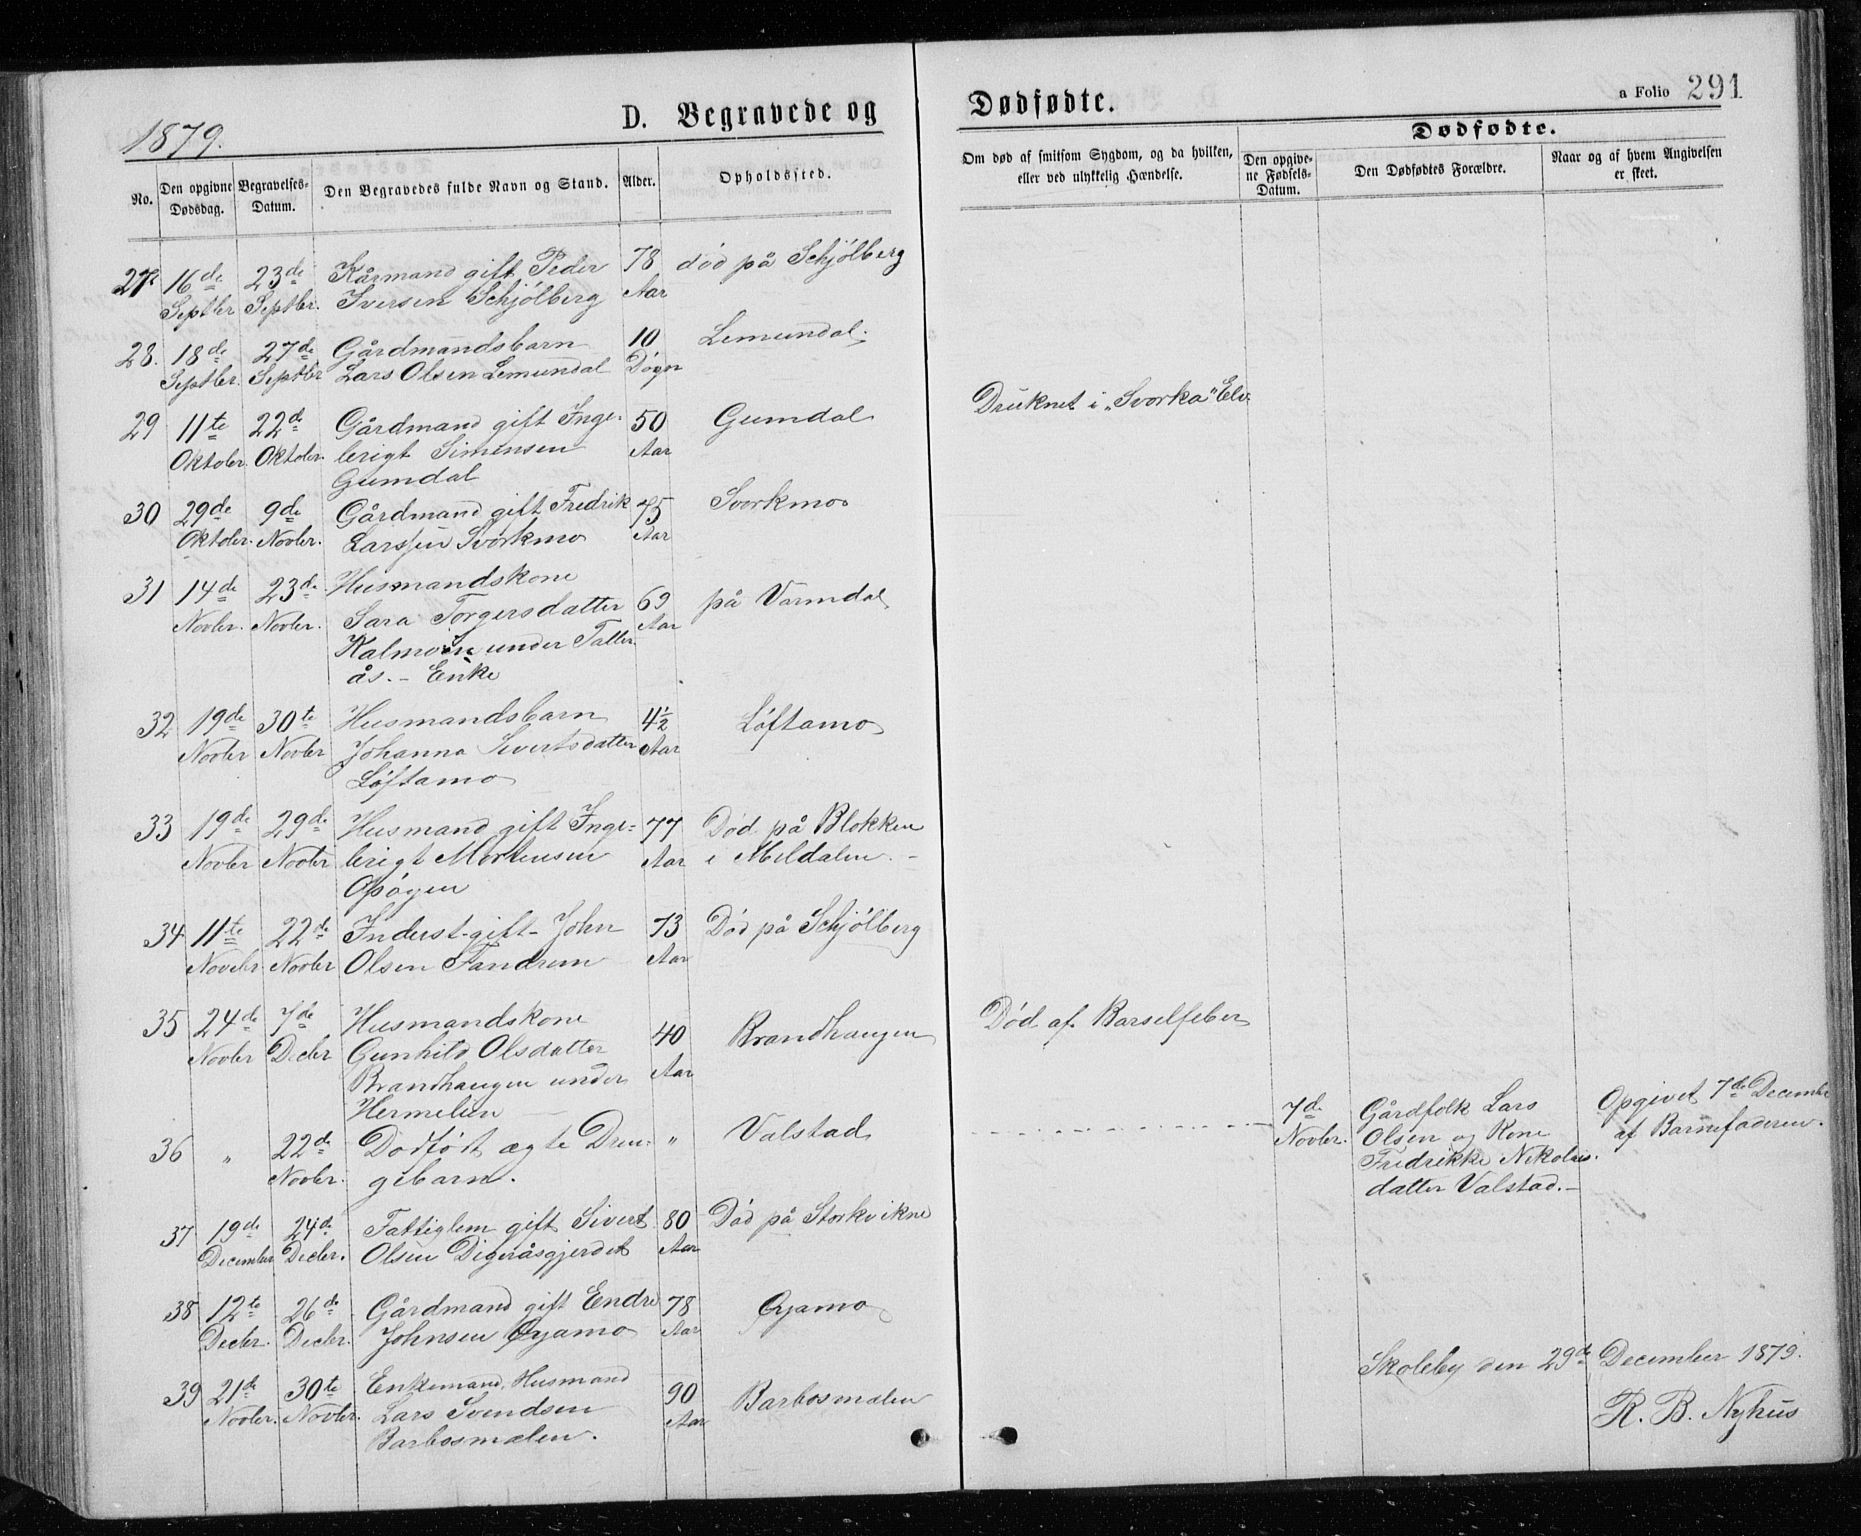 1879.
D. Begravede og
Dødfødte.
a Folio 291
No.
Den opgivne Dødsdag.
Begravelses-Datum.
Den Begravedes fulde Navn og Stand.
Alder.
Opholdssted.
Om død af smitsom Sygdom, og da hvilken, eller ved ulykkelig Hændelse.
Dødfødte.
Den opgivne Fødsels-Datum.
Den Dødfødtes Forældre.
Naar og af hvem Angivelsen er skeet.
27 16de 23de Kårmand gift Peder 78 død på Schjølberg
Septbr Septbr. Iversen Schjølberg Aar
28. 18de 27de Gårdmandsbarn 10 Lemundal.
Septbr. Septbr Lars Olsen Lemundal Døgn
29 11te 22d Gårdmand gift Inge- 50 Gumdal Druknet i "Svorka" Elv.
Oktober. Oktober. brigt Simensen Aar
Gumdal
30 29de 9de Gårdmand gift Fredrik 75 Svorkmo
Oktober. Novbr. Larssen Svorkmo Aar
31 14de 23de Husmandskone
Novbr. Novbr. Sara Torgersdatter 69 på Varmdal
Kalmoen under Tatter- Aar
ås. - Enke
32 19de 30te Husmandsbarn 4½ Løftamo
Novbr Novbr Johanna Sivertsdatter Aar
Løftamo
33 19de 29de Husmand gift Inge= 77 Død på Blokken
Novbr Novbr brigt Mortensen Aar i Meldalen. -
Opøgen
34 11te 22de Inderst-gift- John 73 Død på Schjølberg
Novbr Novbr Olsen Fandrem Aar
35 24de 7de Husmandskone 40 Brandhaugen Død af Barselfeber
Novbr Decbr Gunhild Olsdatter Aar
Brandhaugen under
Hermelin
36 " 22de Dødfødt ægte Dren- " Valstad 7de Gårdfolk Lars Opgivet 7de December
Novbr. gebarn. Novbr. Olsen og Kone af Barnefaderen.
Fredrikke Nikolais-
datter Valstad. -
37 19de 24de Fattiglem gift Sivert 80 Død på Storkvikne
December Decbr. Olsen Digeråsgjerdet Aar
38 12te 26de Gårdmand gift Endre 78 Øyamo
Decbr. Decbr. Johnsen Øyamo Aar
39 21de 30te Enkemand, Husmand 90 Barbosmælen
Novbr. Novbr. Lars Svendsen Aar
Barbosmælen.
Skoleby den 29de December 1879.
R. B. Nyhus